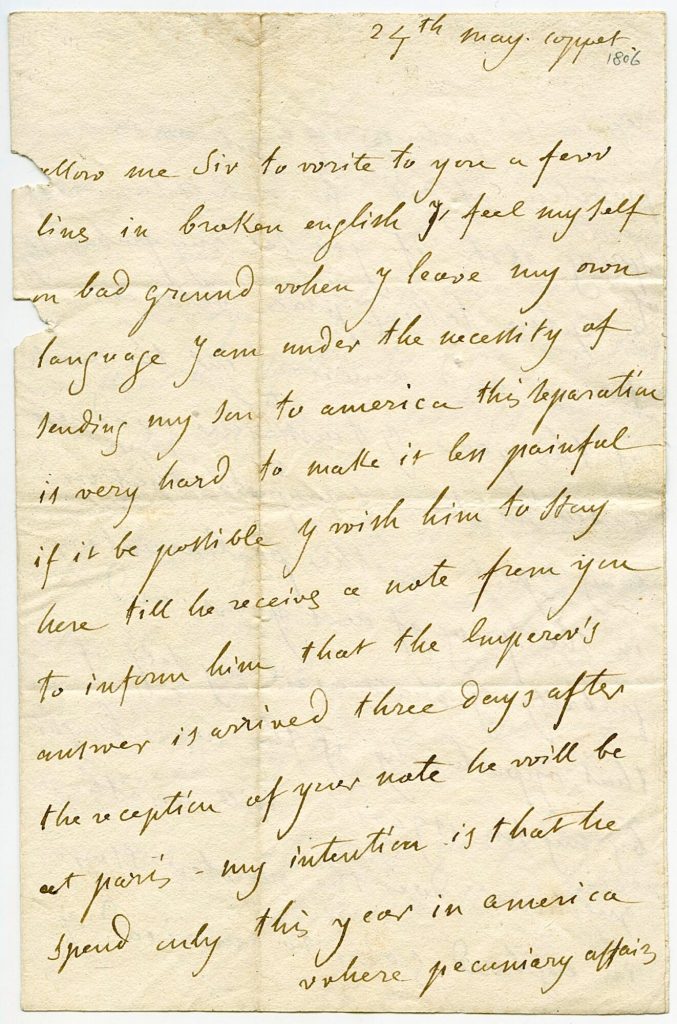 24th may. coppet.
1806
allow me Sir to write to you a few
lines in broken english y feel myself
on bad ground when y leave my own
language y am under the necessity of
sending my son to america this separation
is very hard to make it less painful
if it be possible y wish him to stay
here till he receives a note from you
to inform him that the Emperor's
answer is arrived three days after
the reception of your note he will be
at paris - my intention is that he
spend only this year in america
where pecuniary affairs